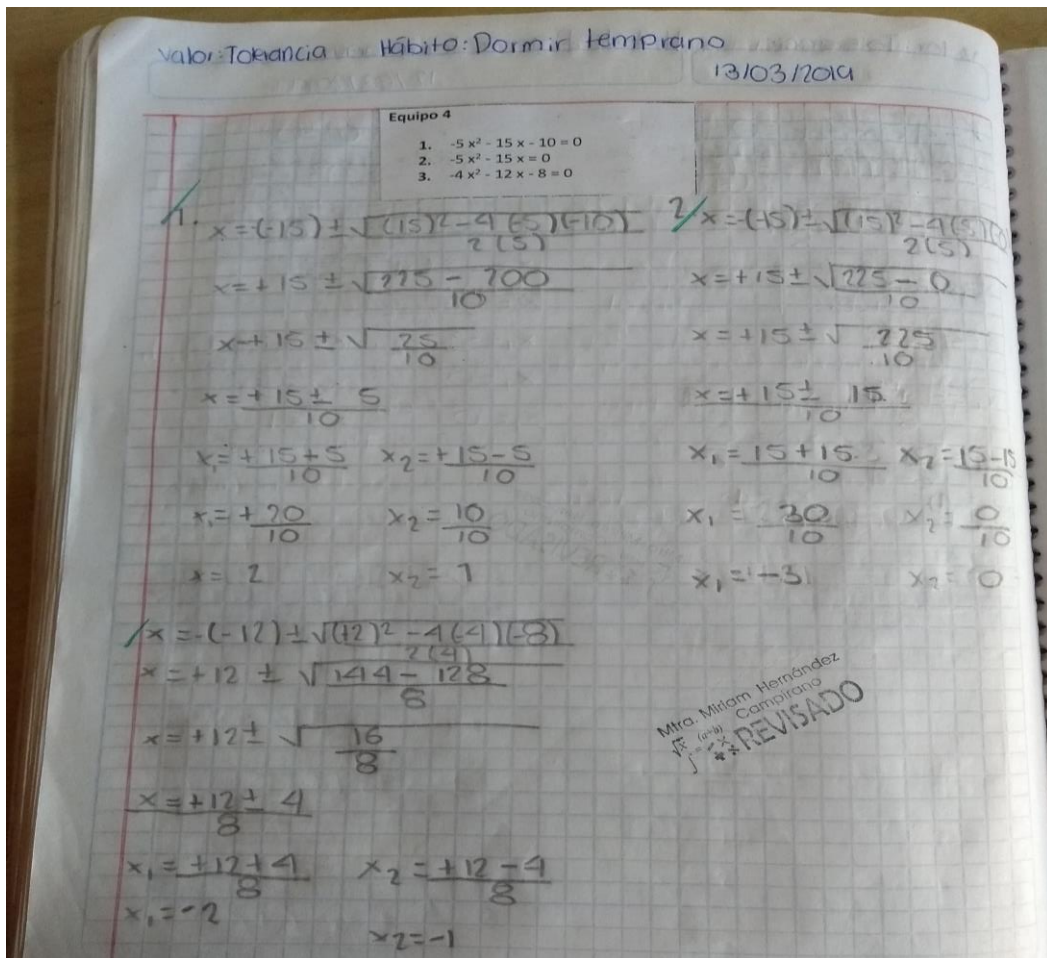 Valor: Tolerancia Hábito: Dormir temprano
13/03/2019
Equipo 4
1. -5 x² - 15 x - 10 = 0
2. -5 x² - 15 x = 0
3. -4 x² - 12 x - 8 = 0
1. x = (-15) ± √(15)² - 4 (-5) (-10)
2 (5)
x = + 15 ± √225 - 200
10
x + 15 ± √25
10
x = + 15 ± 5
10
x₁ = + 15 + 5 x₂ = + 15 - 5
10 10
x₁ = + 20 x₂ = 10
10 10
x = 2 x₂ = 1
2 x = (-15) ± √(15)² - 4 (5)
2 (5)
x = + 15 ± √225 - 0
10
x = + 15 ± √225
10
x = + 15 ± 15
10
x₁ = 15 + 15 x₂ = 15 - 15
10 10
x₁ = 30 x₂ = 0
10 10
x₁ = -3 x₂ = 0
x = -(-12) ± √(12)² - 4 (-4) (-8)
2 (4)
x = + 12 ± √144 - 128
8
x = + 12 ± √16
8
x = + 12 ± 4
8
x₁ = + 12 + 4 x₂ = + 12 - 4
8 8
x₁ = -2
x₂ = -1
Mtra. Miriam Hernández
Campirano
REVISADO